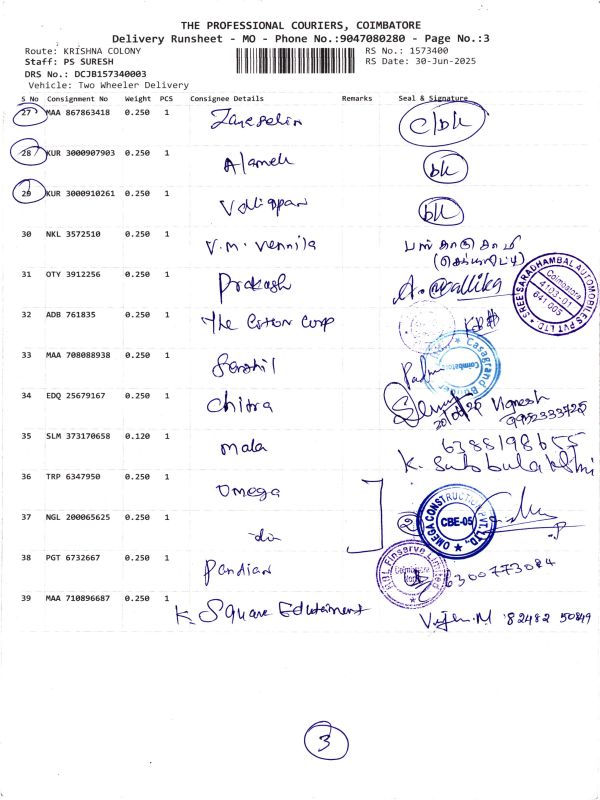 THE PROFESSIONAL COURIERS, COIMBATORE
Delivery Runsheet - MO - Phone No.:9047080280 - Page No.:3
Route: KRISHNA COLONY RS No.: 1573400
Staff: PS SURESH RS Date: 30-Jun-2025
DRS No.: DCJB157340003
Vehicle: Two Wheeler Delivery
S No Consignment No Weight PCS Consignee Details Remarks Seal & Signature
27 MAA 867863418 0.250 1 c/bk
28 KUR 3000907903 0.250 1 bk
29 KUR 3000910261 0.250 1 Valliappan bk
30 NKL 3572510 0.250 1 V.M. Vennila
31 OTY 3912256 0.250 1 Prakash A. Mallika
SREE SARADHAMBAL AUTOMOBILES PVT LTD Coimbatore 641 005
32 ADB 761835 0.250 1 The Cotton Corp
33 MAA 708088938 0.250 1 Senthil Padma
Casagrand Coimbatore
34 EDQ 25679167 0.250 1 Chitra Vignesh
35 SLM 373170658 0.120 1 Mala
K. Subbulakshmi
36 TRP 6347950 0.250 1 Omega
37 NGL 200065625 0.250 1 do
OMEGA CONSTRUCTION PVT. LTD. CBE-05
38 PGT 6732667 0.250 1 Pandian 6300773084
Finserve Limited Coimbatore
39 MAA 710896687 0.250 1 K. Square Edutainment 82482 50849
3